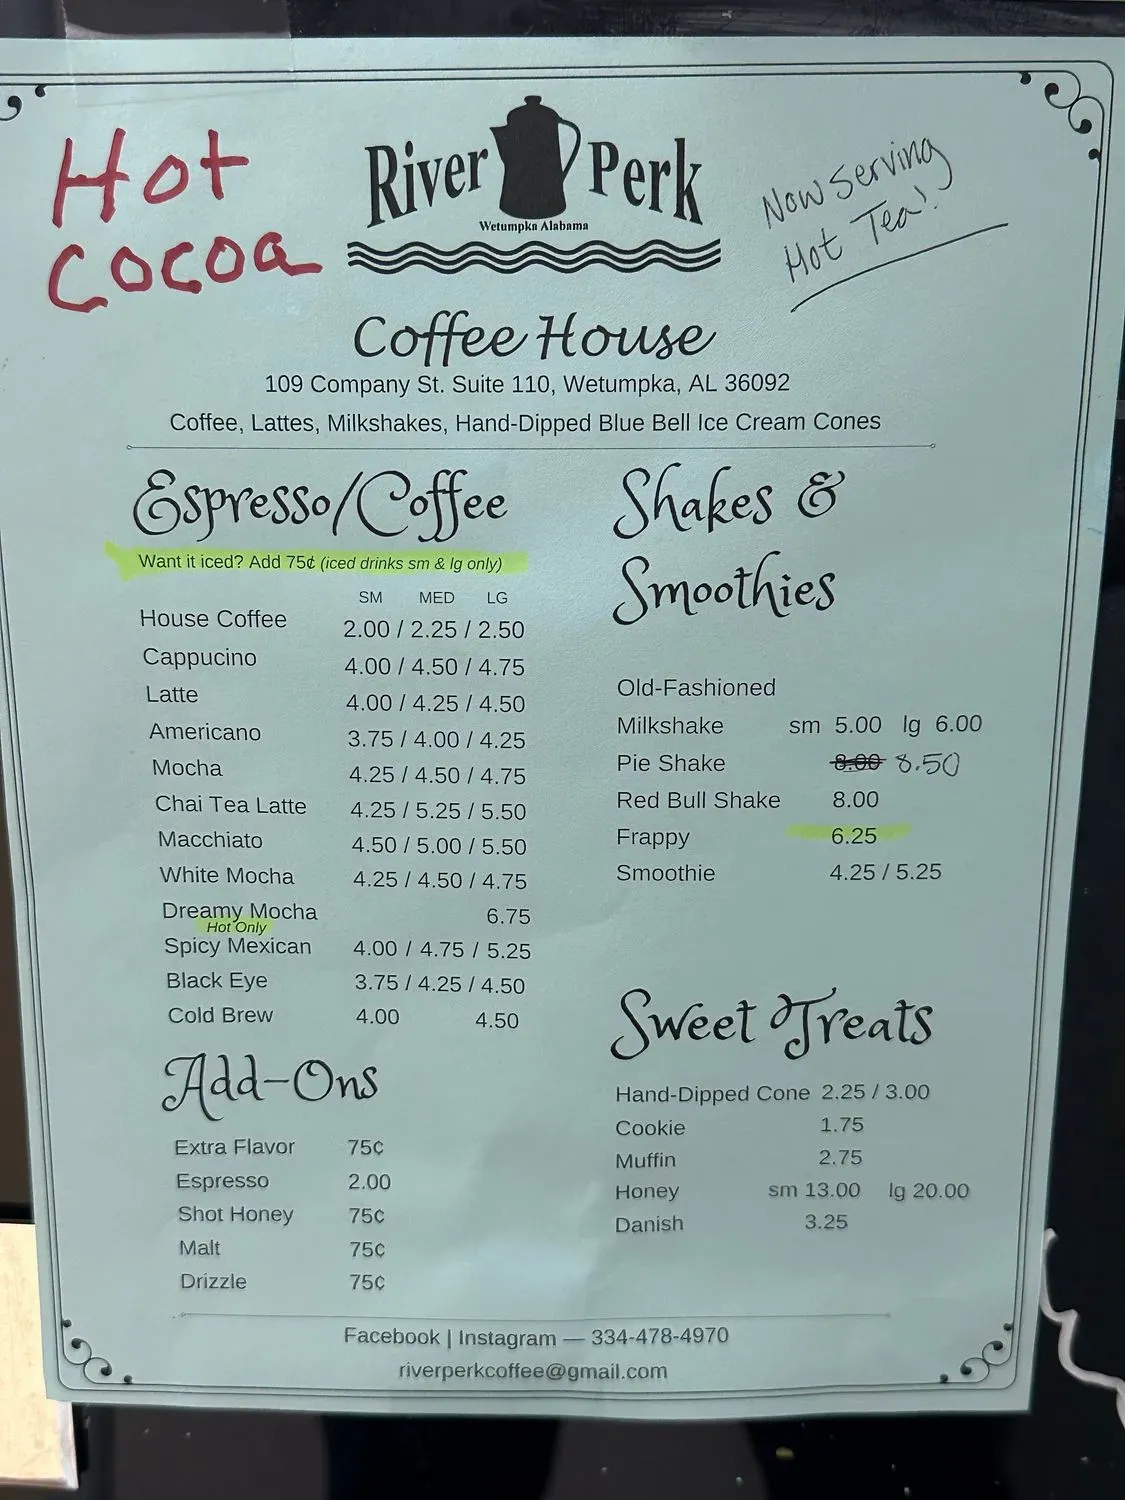 Hot
Cocoa
River Perk
Wetumpka Alabama
Now Serving
Hot Tea!
Coffee House
109 Company St. Suite 110, Wetumpka, AL 36092
Coffee, Lattes, Milkshakes, Hand-Dipped Blue Bell Ice Cream Cones
Espresso/Coffee
Want it iced? Add 75¢ (iced drinks sm & lg only)
SM MED LG
House Coffee 2.00 / 2.25 / 2.50
Cappucino 4.00 / 4.50 / 4.75
Latte 4.00 / 4.25 / 4.50
Americano 3.75 / 4.00 / 4.25
Mocha 4.25 / 4.50 / 4.75
Chai Tea Latte 4.25 / 5.25 / 5.50
Macchiato 4.50 / 5.00 / 5.50
White Mocha 4.25 / 4.50 / 4.75
Dreamy Mocha 6.75
Hot Only
Spicy Mexican 4.00 / 4.75 / 5.25
Black Eye 3.75 / 4.25 / 4.50
Cold Brew 4.00 4.50
Add-Ons
Extra Flavor 75¢
Espresso 2.00
Shot Honey 75¢
Malt 75¢
Drizzle 75¢
Shakes &
Smoothies
Old-Fashioned
Milkshake sm 5.00 lg 6.00
Pie Shake 8.00 8.50
Red Bull Shake 8.00
Frappy 6.25
Smoothie 4.25 / 5.25
Sweet Treats
Hand-Dipped Cone 2.25 / 3.00
Cookie 1.75
Muffin 2.75
Honey sm 13.00 lg 20.00
Danish 3.25
Facebook | Instagram — 334-478-4970
riverperkcoffee@gmail.com